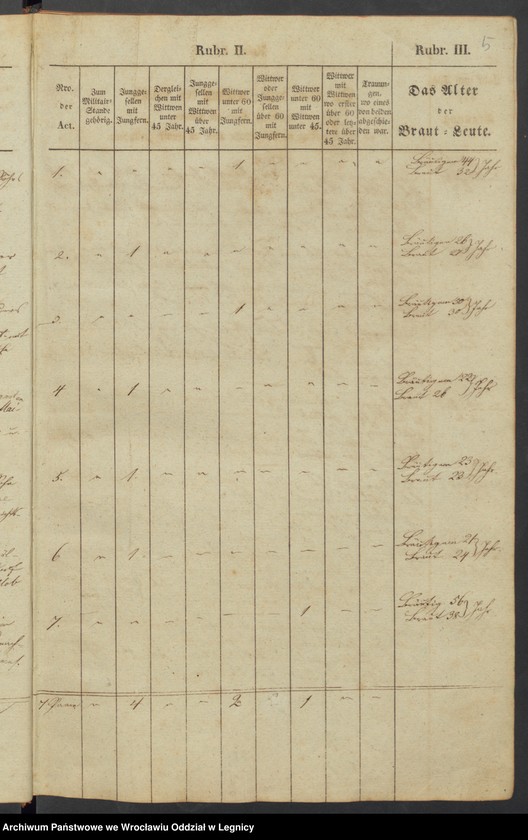 5
Rubr. II.
Rubr. III.
Nro. der Act.
Zum Militair-Stande gehörig.
Jungge-sellen mit Jungfern.
Derglei-chen mit Wittwen unter 45 Jahr.
Jungge-sellen mit Wittwen über 45 Jahr.
Wittwer unter 60 mit Jungfern.
Wittwer oder Jungge-sellen über 60 mit Jungfern.
Wittwer unter 60 mit Wittwen unter 45.
Wittwer mit Wittwen wo erster über 60 oder letz-tere über 45 Jahr.
Trauun-gen, wo eines von beiden abgeschie-den war.
Das Alter der Braut-Leute.
1. - - - - 1 - - - - Bräutigam 44
Braut 32 Jahr
2. - 1 - - - - - - - Bräutigam 26
Braut Jahr
3. - - - - 1 - - - - Bräutigam 30
Braut 30 Jahr
4 - 1 - - - - - - - Bräutigam 22
Braut 26 Jahr
5. - 1. - - - - - - - Bräutigam 23
Braut 23 Jahr
6 - 1. - - - - - - - Bräutigam
Braut 24 Jahr
7. - - - - - - 1 - - Bräutig 56
Braut 38 Jahr
7. Paar - 4 - - 2 - 1 - -
Archiwum Państwowe we Wrocławiu Oddział w Legnicy